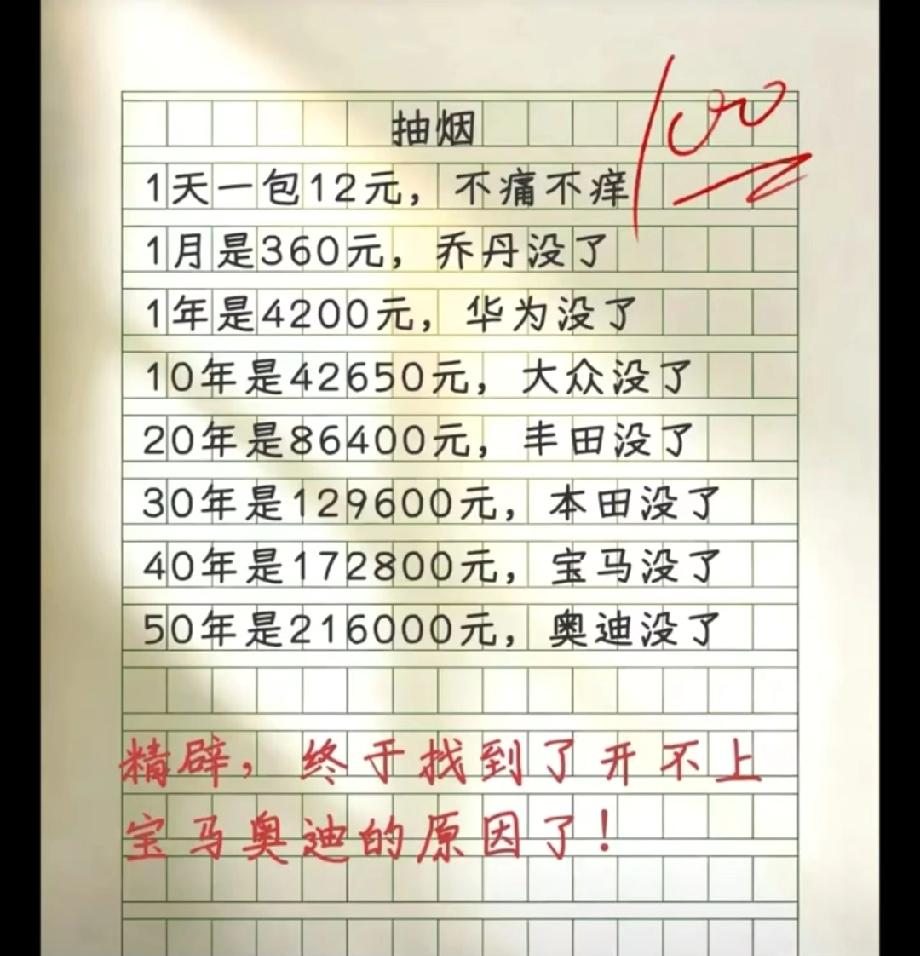 抽烟
100
1天一包12元，不痛不痒
1月是360元，乔丹没了
1年是4200元，华为没了
10年是42650元，大众没了
20年是86400元，丰田没了
30年是129600元，本田没了
40年是172800元，宝马没了
50年是216000元，奥迪没了
精辟，终于找到了开不上
宝马奥迪的原因了！